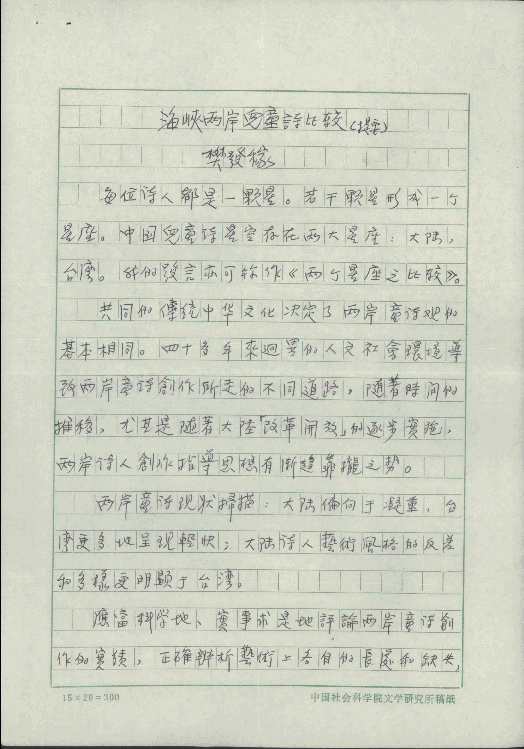 海峽两岸兒童詩比较(提要)
樊發稼
每位诗人都是一顆星。若干顆星形成一个
星座。中国兒童诗星空存在两大星座：大陆，
台湾。我的發言亦可称作《两个星座之比较》。
共同的傳統中华文化决定了两岸童诗观的
基本相同。四十多年來迥異的人文社會環境導
致两岸童诗創作所走的不同道路。随着時间的
推移，尤其是随着大陸「改革開放」的逐步實施，
两岸诗人創作指導思想有渐趨靠攏之势。
两岸童诗现状掃描：大陆偏向于凝重，台
湾更多地呈现輕快；大陆诗人藝術風格的反差
和多樣更明顯于台湾。
應當科学地、實事求是地評論两岸童诗創
作的實績，正確辨析藝術上各自的長處和缺失，
15×20=300
中国社会科学院文学研究所稿纸